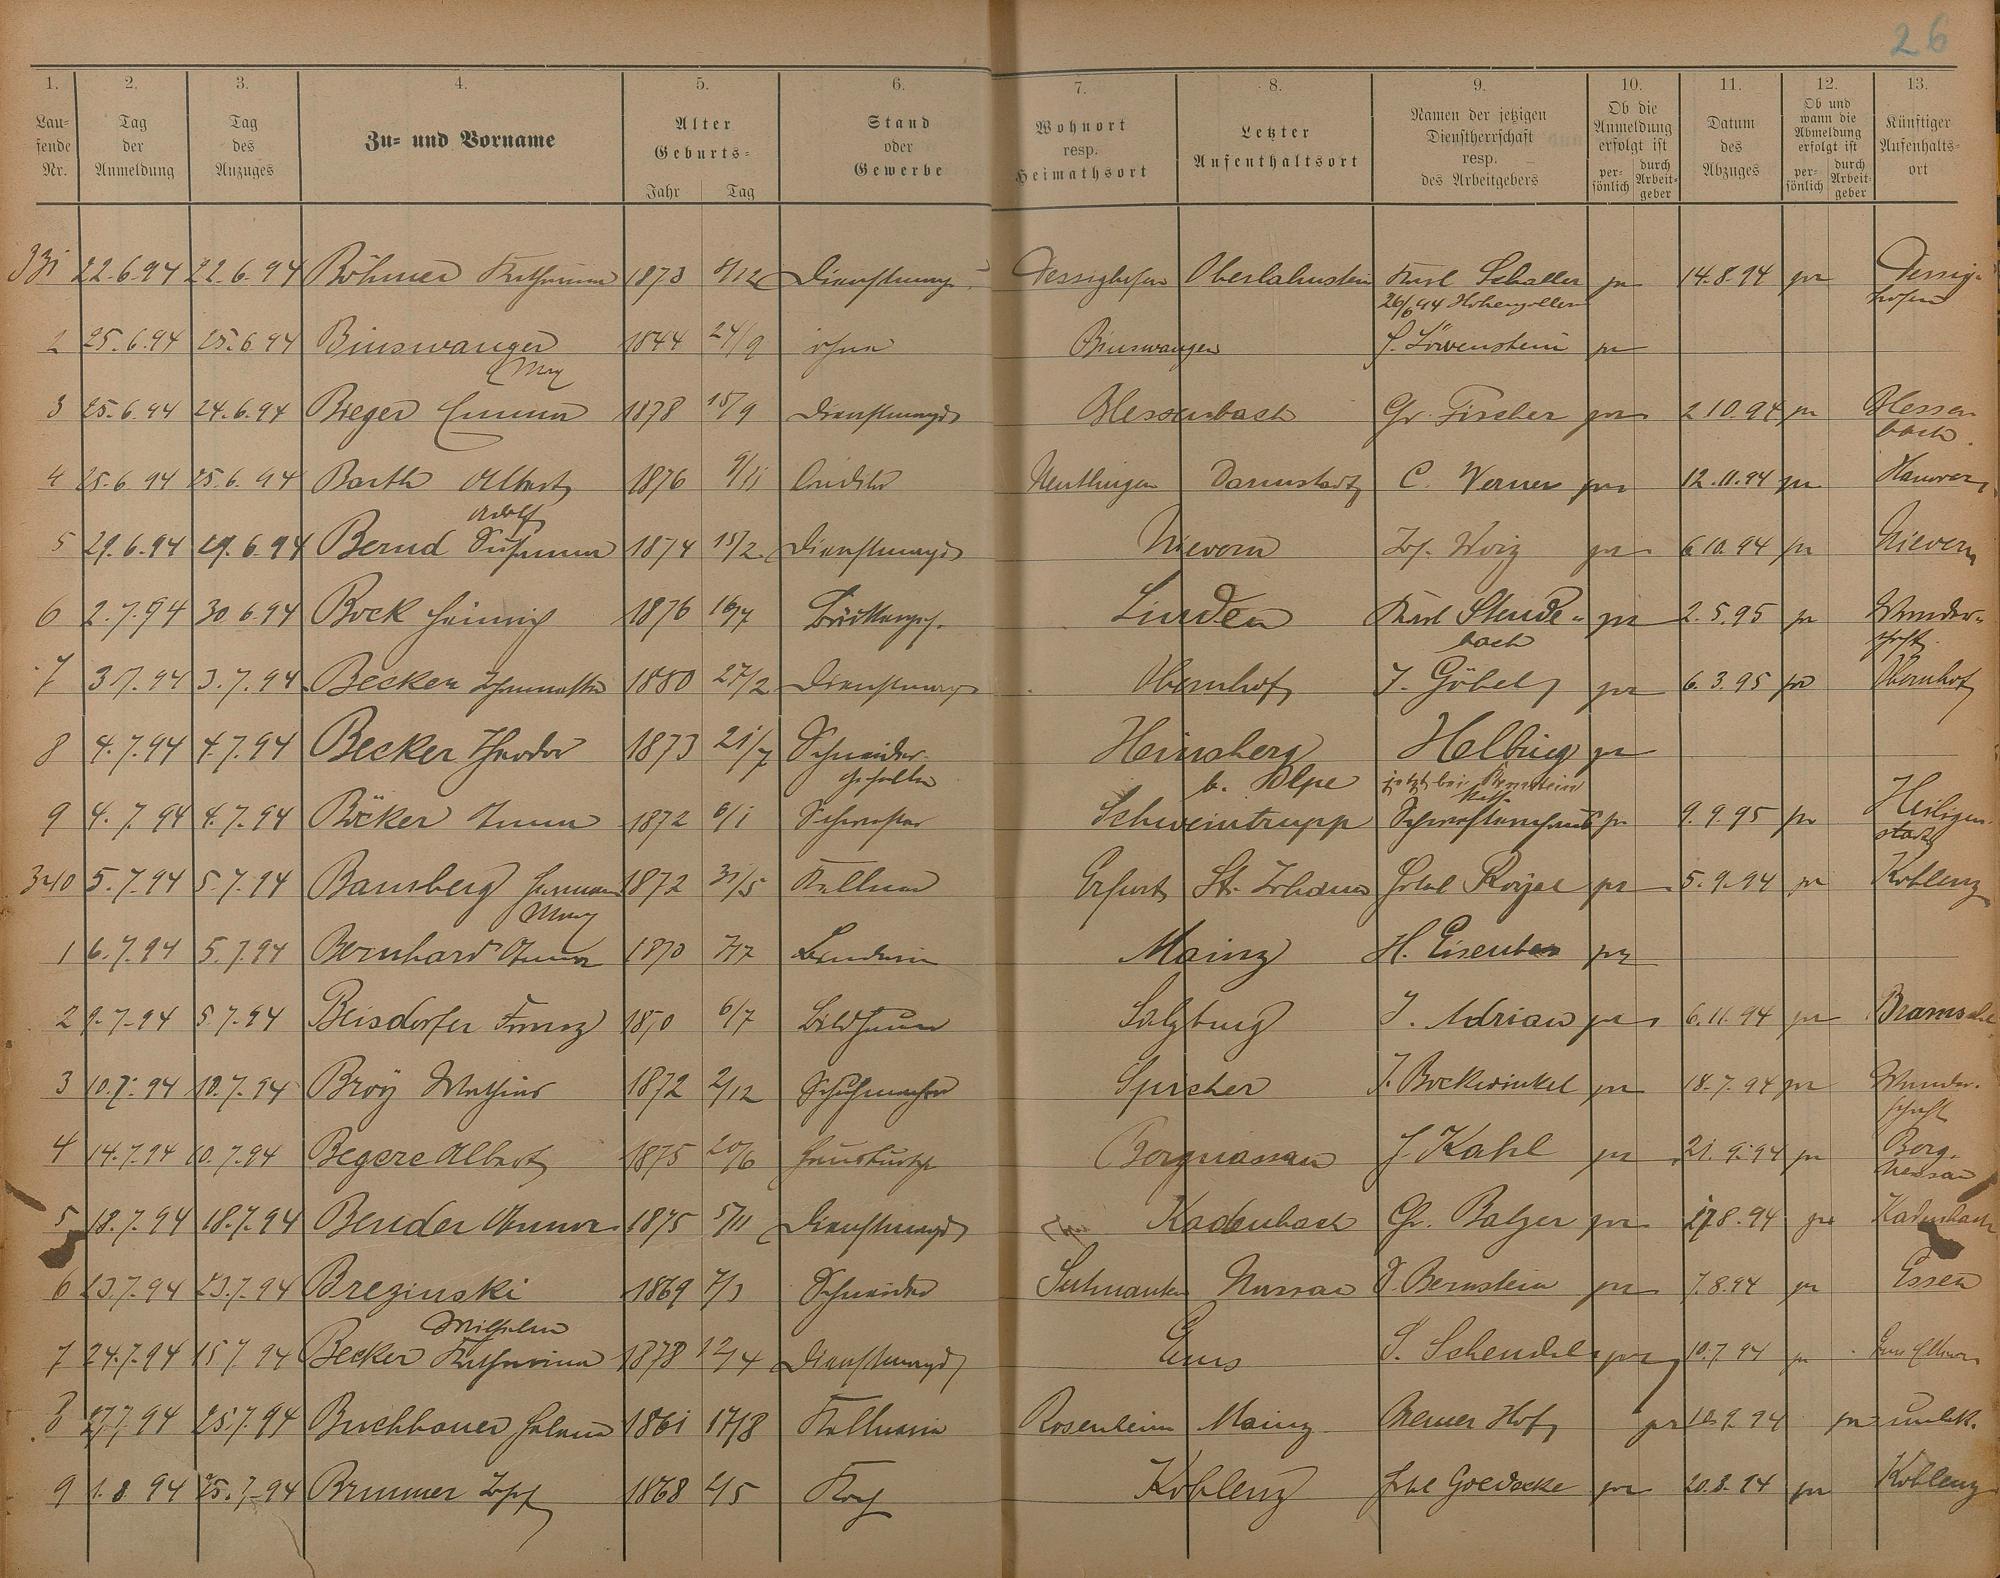 26
1. 2. 3. 4. 5. 6. 7. 8. 9. 10. 11. 12. 13.
Lau-
fende
Nr.
Tag
der
Anmeldung
Tag
des
Anzuges
Zu- und Vorname
Alter
Geburts-
Jahr Tag
Stand
oder
Gewerbe
Wohnort
resp.
Heimathsort
Letzter
Aufenthaltsort
Namen der jetzigen
Dienstherrschaft
resp.
des Arbeitgebers
Ob die
Anmeldung
erfolgt ist
per-
sönlich
durch
Arbeit-
geber
Datum
des
Abzuges
Ob und
wann die
Abmeldung
erfolgt ist
per-
sönlich
durch
Arbeit-
geber
Künftiger
Aufenthalts-
ort
331 22.6.94 22.6.94 Böhmer Katharina 1873 8/12 Dienstmagd Dessighofen Oberlahnstein Karl Schaller pr 14.8.94 pr Dessig-
26/6 94 Hohenzollern hofen
2 25.6.94 25.6.94 Binswanger 1844 24/9 ohne Binswangen S. Löwenstein pr
Max
3 25.6.94 24.6.94 Bieger Emma 1878 15/9 Dienstmagd Hessenbach Gr. Fischer pr 2.10.94 pr Hessen
bach.
4 25.6.94 25.6.94 Barth Albert 1876 9/11 Conditor Darmstadt C. Werner pr 12.11.94 pr Hanover
Adolf
5 29.6.94 29.6.94 Bernd Susanna 1874 15/2 Dienstmagd Nievern Jos. pr 6.10.94 pr Nievern
6 2.7.94 30.6.94 Bock Heinrich 1876 16/7 Linden Karl Stude- pr 2.5.95 pr Wander-
bach schaft.
7 3.7.94 3.7.94 Becker 1880 27/2 Dienstmagd Obernhof J. Göbel pr 6.3.95 pr Obernhof
8 4.7.94 4.7.94 Becker Theodor 1873 21/7 Schneider- Heinsberg Helbing pr
gehülfe b. Olpe jetzt bei Bernstein
9 4.7.94 4.7.94 Böcker Anna 1872 6/1 Schwester Schweintrupp Schwesternhaus pr 9.9.95 pr Heiligen-
stadt
340 5.7.94 5.7.94 Bamberg Hermann 1872 31/5 Kellner Erfurt St. Johann Hotel Royal pr 5.9.94 pr Koblenz
Max
1 6.7.94 5.7.94 Bernhard Anna 1870 7/7 Mainz H. pr
2 9.7.94 5.7.94 Beisdorfer Franz 1850 6/7 Bildhauer Salzburg J. Adrian pr 6.11.94 pr
3 10.7.94 10.7.94 Broÿ Mathias 1872 2/12 Schuhmacher Spicher J. Bockwinkel pr 18.7.94 pr Wander-
schaft
4 14.7.94 10.7.94 Begere Albert 1875 20/6 Hausbursche Bergnassau J. Kahl pr 21.9.94 pr Berg-
nassau
5 18.7.94 18.7.94 Bender Anna 1875 5/11 Dienstmagd Kadenbach Gr. Balzer pr 17.8.94 pr Kadenbach
6 23.7.94 23.7.94 Brezinski 1869 7/3 Schneider Nassau S. Bernstein pr 7.8.94 pr Essen
Wilhelm
7 24.7.94 15.7.94 Becker Katharina 1878 12/4 Dienstmagd Ems S. Schendel pr 10.7.94 pr
8 27.7.94 25.7.94 Buchhauer Helena 1861 17/8 Kellnerin Rosenheim Mainz Bremer Hof pr 10.9.94 pr unbek.
9 1.8.94 25.7.94 Brummer Josef 1868 2/5 Koch Koblenz Hotel Goedecke pr 20.8.94 pr Koblenz